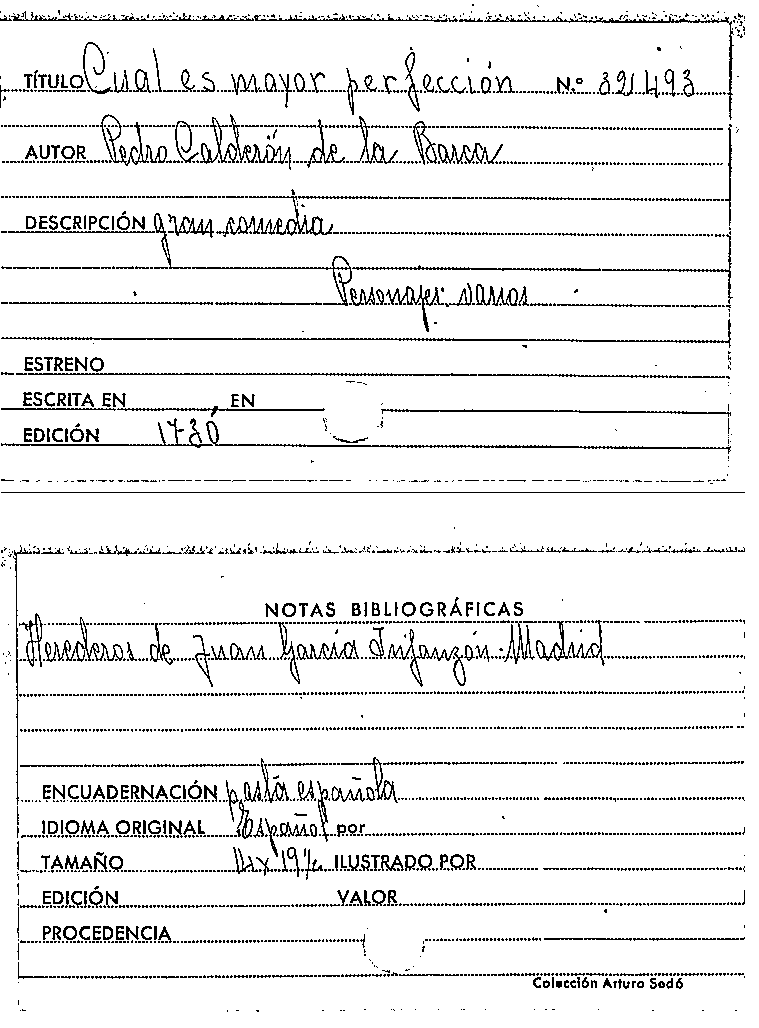 TÍTULO Cual es mayor perfección N.º 321493
AUTOR Pedro Calderón de la Barca
DESCRIPCIÓN gran comedia
Personajes: varios
ESTRENO
ESCRITA EN EN
EDICIÓN 1730
NOTAS BIBLIOGRÁFICAS
Herederos de Juan García Infanzón. Madrid
ENCUADERNACIÓN pasta española
IDIOMA ORIGINAL Español por
TAMAÑO ILUSTRADO POR
EDICIÓN VALOR
PROCEDENCIA
Colección Arturo Sedó